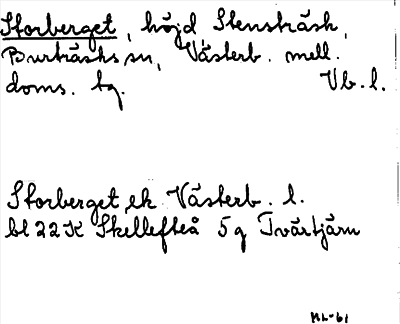 Storberget, höjd, Stensträsk,
Burträsks sn, Västerb. mell.
doms. tg. Vb. l.
Storberget ek Västerb. l.
bl 22K Skellefteå 5g Tvärtjärn
ML-61